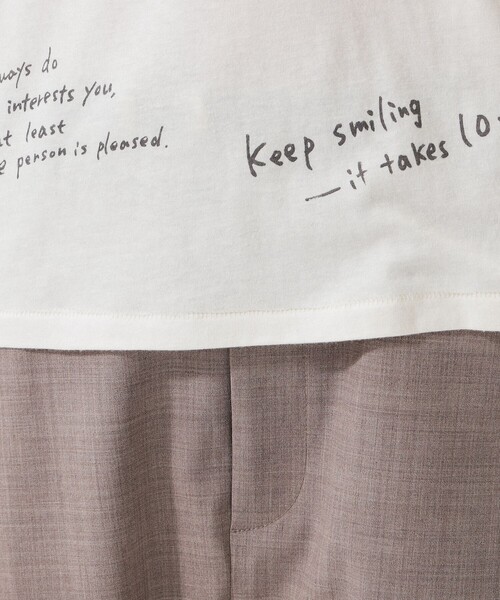 ways do
interests you,
at least
person is pleased.
Keep smiling
—it takes 10